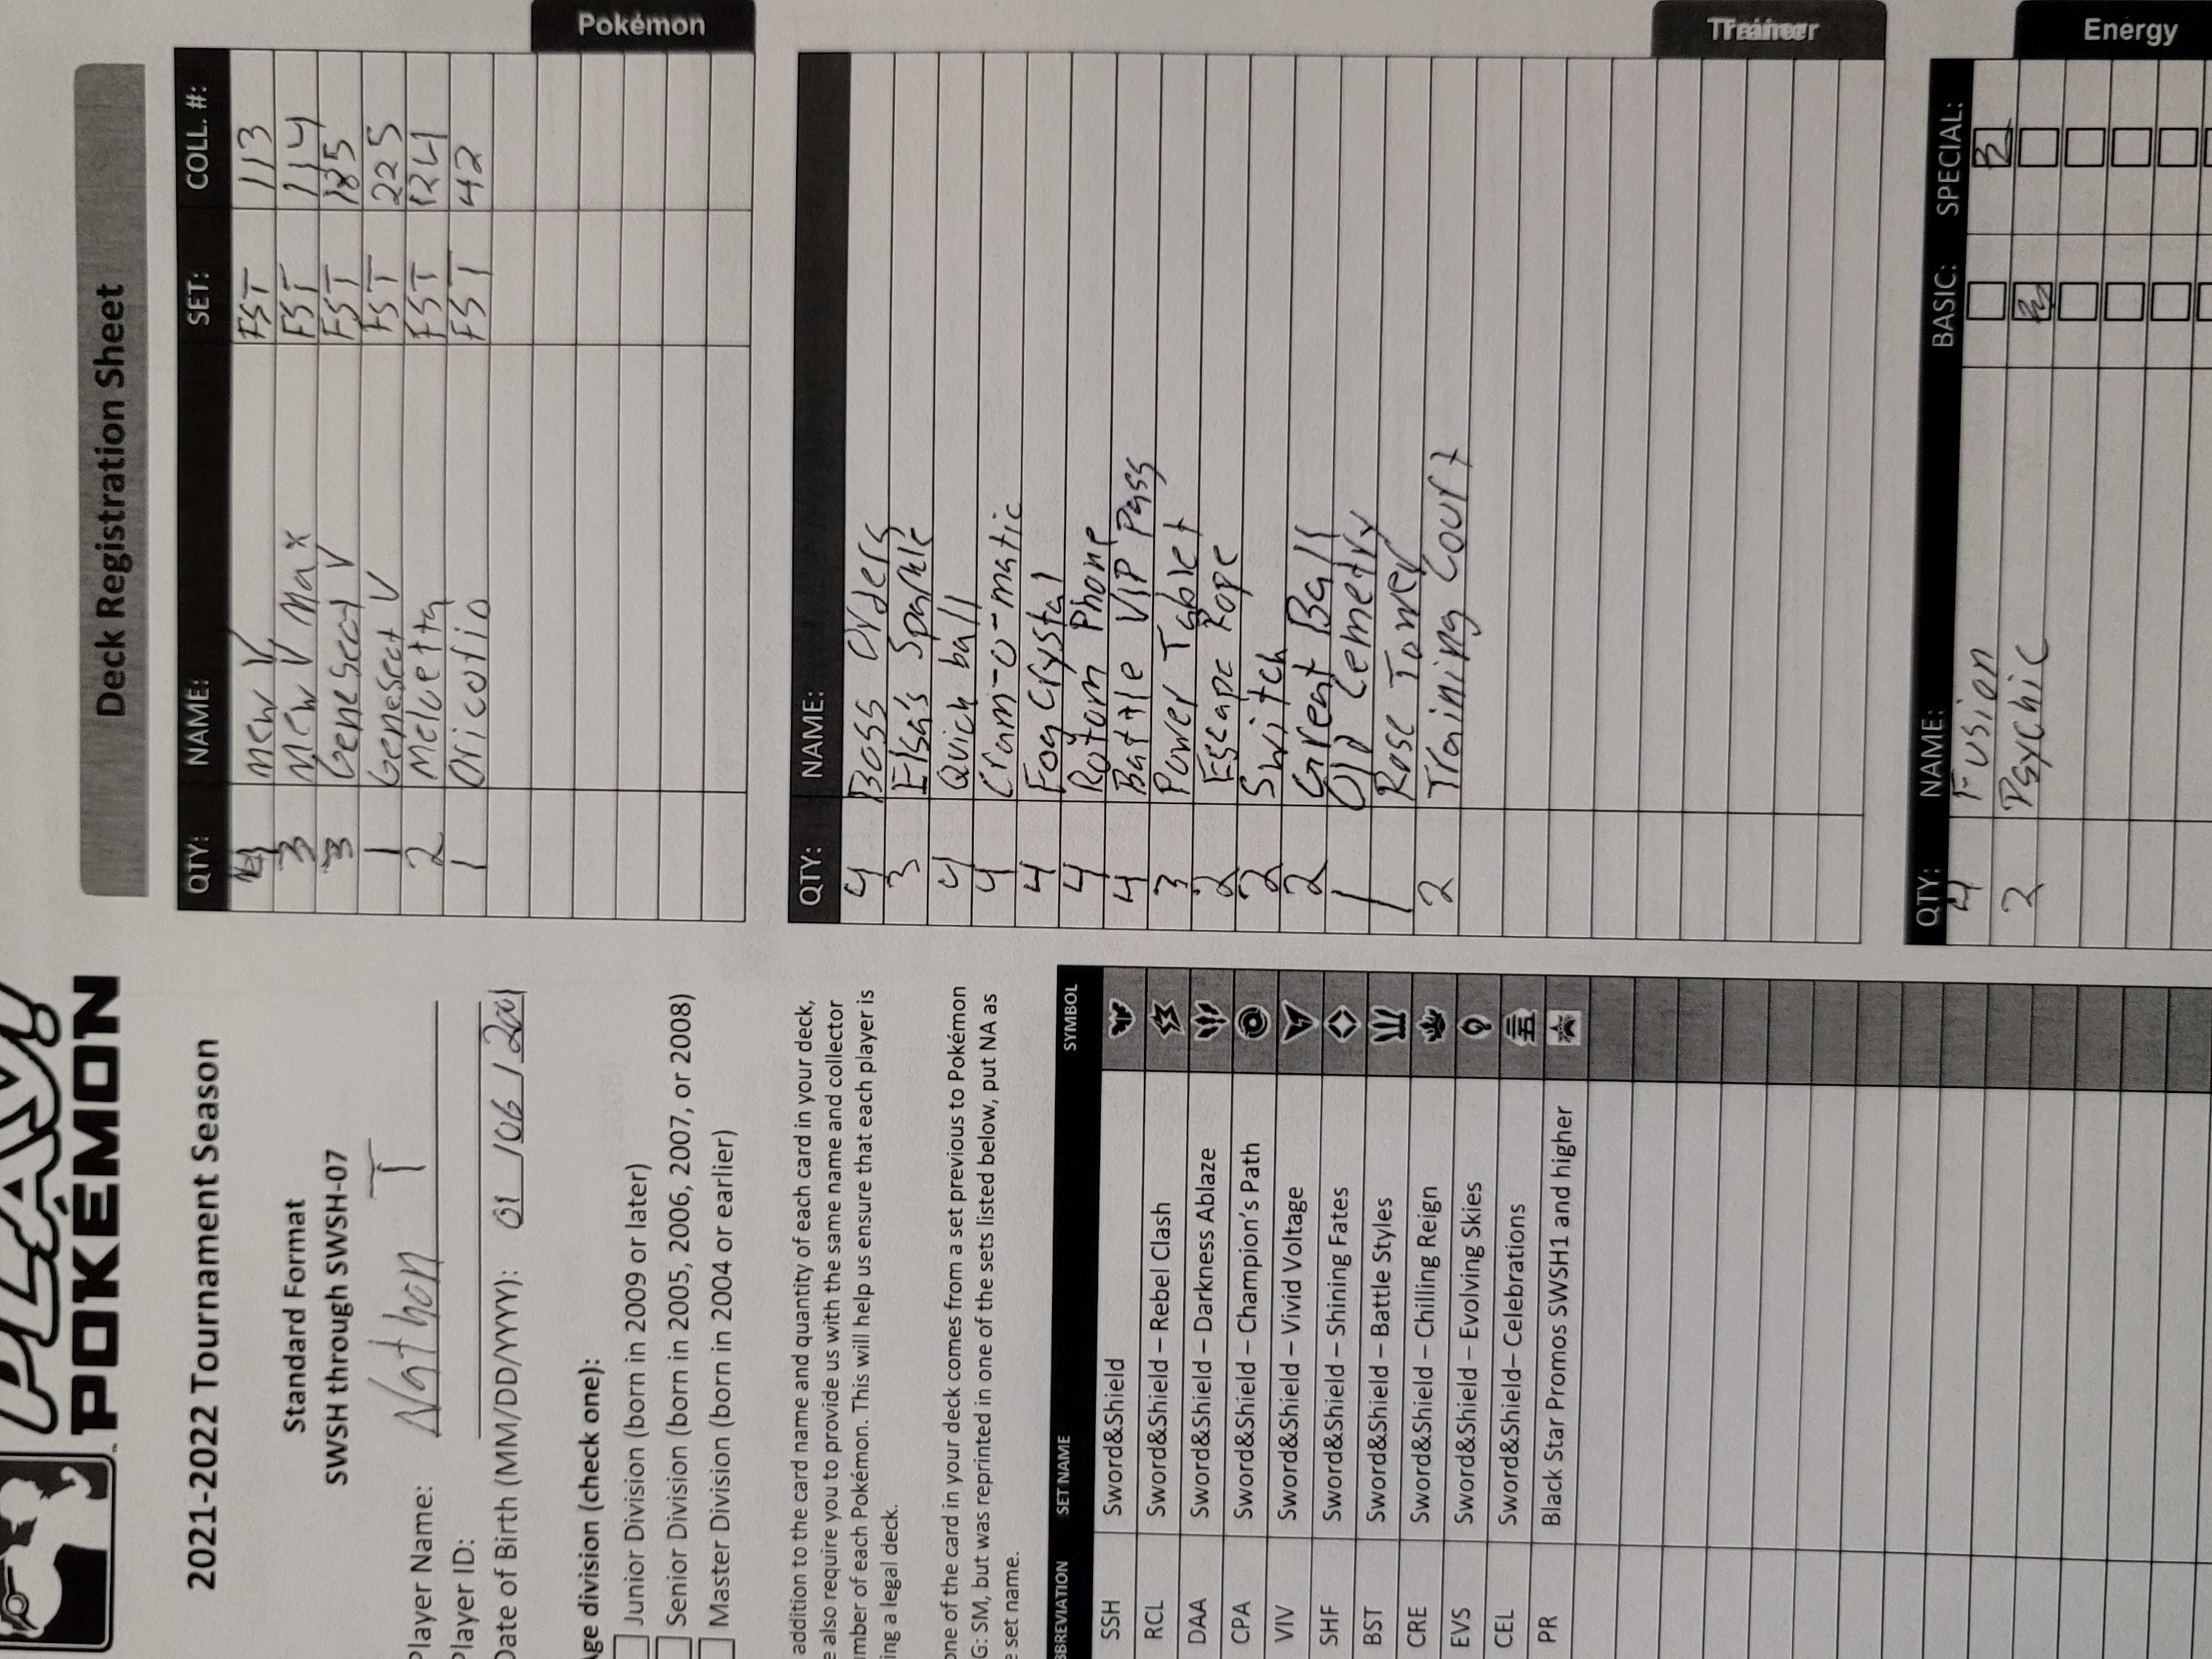 PLAY!
POKÉMON
2021-2022 Tournament Season
Standard Format
SWSH through SWSH-07
Player Name: Nathan T
Player ID:
Date of Birth (MM/DD/YYYY): 01/06/2001
Age division (check one):
Junior Division (born in 2009 or later)
Senior Division (born in 2005, 2006, 2007, or 2008)
Master Division (born in 2004 or earlier)
addition to the card name and quantity of each card in your deck,
also require you to provide us with the same name and collector
number of each Pokémon. This will help us ensure that each player is
a legal deck.
one of the card in your deck comes from a set previous to Pokémon
G: SM, but was reprinted in one of the sets listed below, put NA as
set name.
ABBREVIATION SET NAME SYMBOL
SSH Sword&Shield
RCL Sword&Shield – Rebel Clash
DAA Sword&Shield – Darkness Ablaze
CPA Sword&Shield – Champion's Path
VIV Sword&Shield – Vivid Voltage
SHF Sword&Shield – Shining Fates
BST Sword&Shield – Battle Styles
CRE Sword&Shield – Chilling Reign
EVS Sword&Shield – Evolving Skies
CEL Sword&Shield– Celebrations
PR Black Star Promos SWSH1 and higher
Deck Registration Sheet
QTY: NAME: SET: COLL. #:
4 Mew V FST 113
3 Mew V Max FST 114
3 Genesect V FST 185
1 Genesect V FST 225
2 Meloetta FST 124
1 Oricorio FST 42
Pokémon
QTY: NAME:
4 Boss Orders
3 Elsa's Sparkle
4 Quick ball
4 Cram-o-matic
4 Fog Crystal
4 Rotom Phone
4 Battle VIP Pass
3 Power Tablet
2 Escape Rope
2 Switch
2 Great Ball
1 Old Cemetry
1 Rose Tower
2 Training Court
Trainer
QTY: NAME: BASIC: SPECIAL:
4 Fusion
2 Psychic
Energy